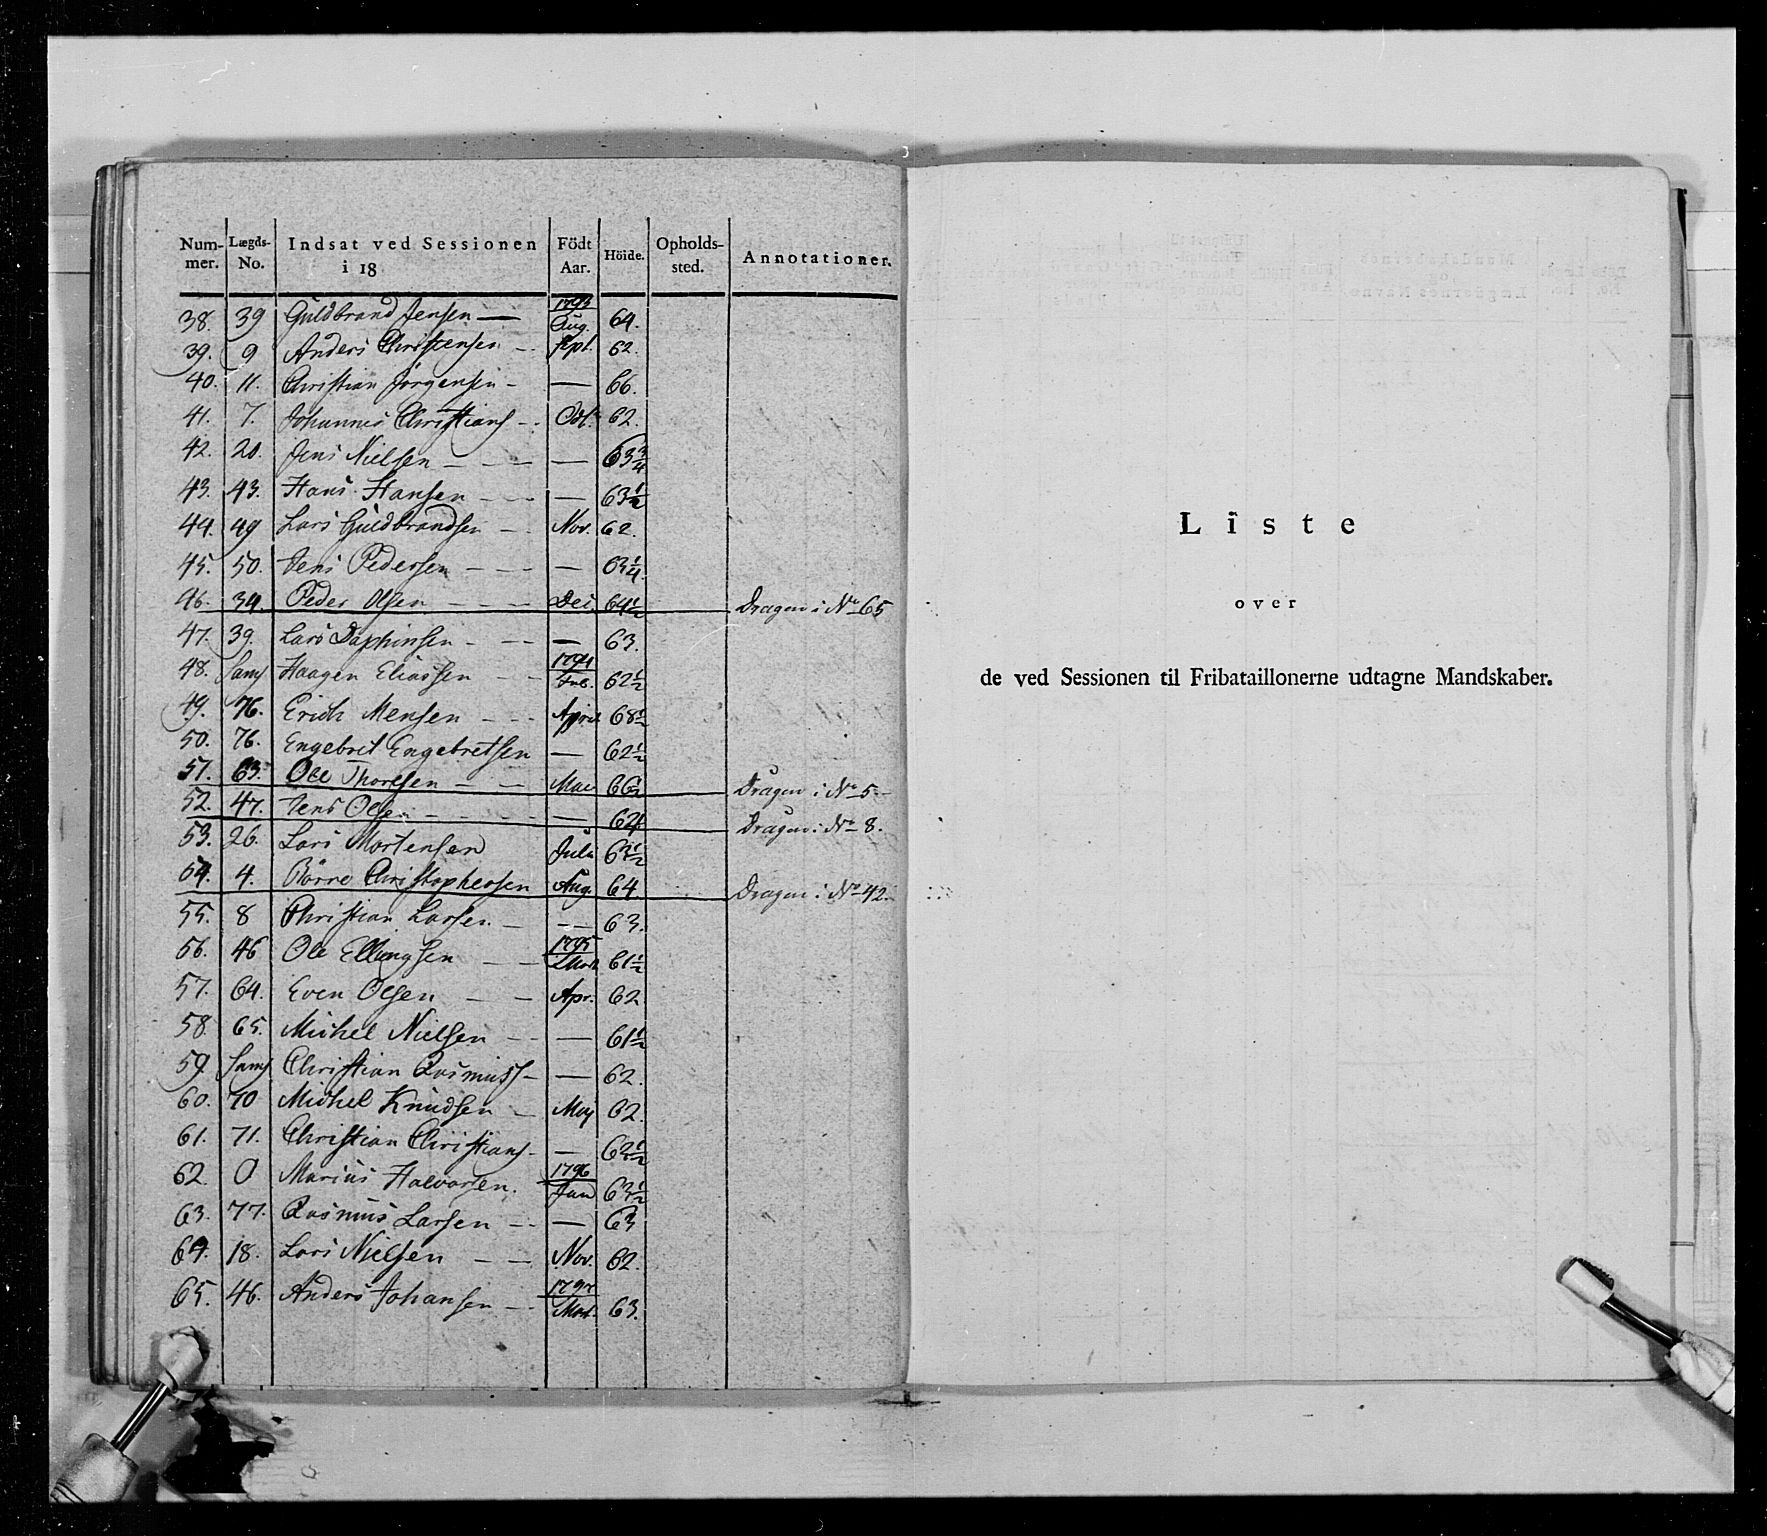 Num- Lægds- Indsat ved Sessionen Födt Höide. Opholds- Annotationer.
mer. No. i 18 Aar. sted.
1793
38. 39 Guldbrand Jensen — Aug. 64.
39. 9 Anders Christensen - Sept. 62.
40. 11. Christian Jörgensen - — 66.
41. 7. Johannes Christians - Oct. 62.
42. 20. Jens Nielsen - - - — 63 3/4
43. 43. Hans Hansen - - - — 63 1/2
44. 49 Lars Guldbrandsen - - Nov. 62.
45. 50. Jens Pedersen - - - — 63 1/4
46. 34. Peder Olsen - - - Dec. 64 1/2 Dragon i No 65
47. 39. Lars - - - — 63.
1794
48. Sams Haagen Eliassen - - Feb. 62 1/2
49. 76. Erich Mensen - - - April 68 1/2
50. 76. Engebret Engebretsen — 62 1/2
51. 63. Ole Thoresen - - - Mai 66 1/2 Dragon i No 5 -
52. 47. Jens Olsen - - - — 64 Dragon i No 8.
53. 26. Lars Mortensen Juli 63 1/2
54. 4. Börre Christophersen Aug. 64. Dragon i No 42.
55. 8 Christian Larsen - — 63.
1795
56. 46 Ole Ellingsen - - Mart. 61 1/2
57. 64. Even Olsen - - Apr. 62
58 65. Michel Nielsen - - — 61 1/2
59. Sams Christian Rasmuss - — 62.
60. 70 Michel Knudsen - Maj 62.
61. 71. Christian Christians - — 62 1/2
1796
62. 0 Marius Halvorsen. Jan 63 1/2
63. 77. Rasmus Larsen - - — 63
64. 18. Lars Nielsen - - Nov. 62.
1797
65. 46. Anders Johansen - - Mart. 63.
Liste
over
de ved Sessionen til Fribataillonerne udtagne Mandskaber.